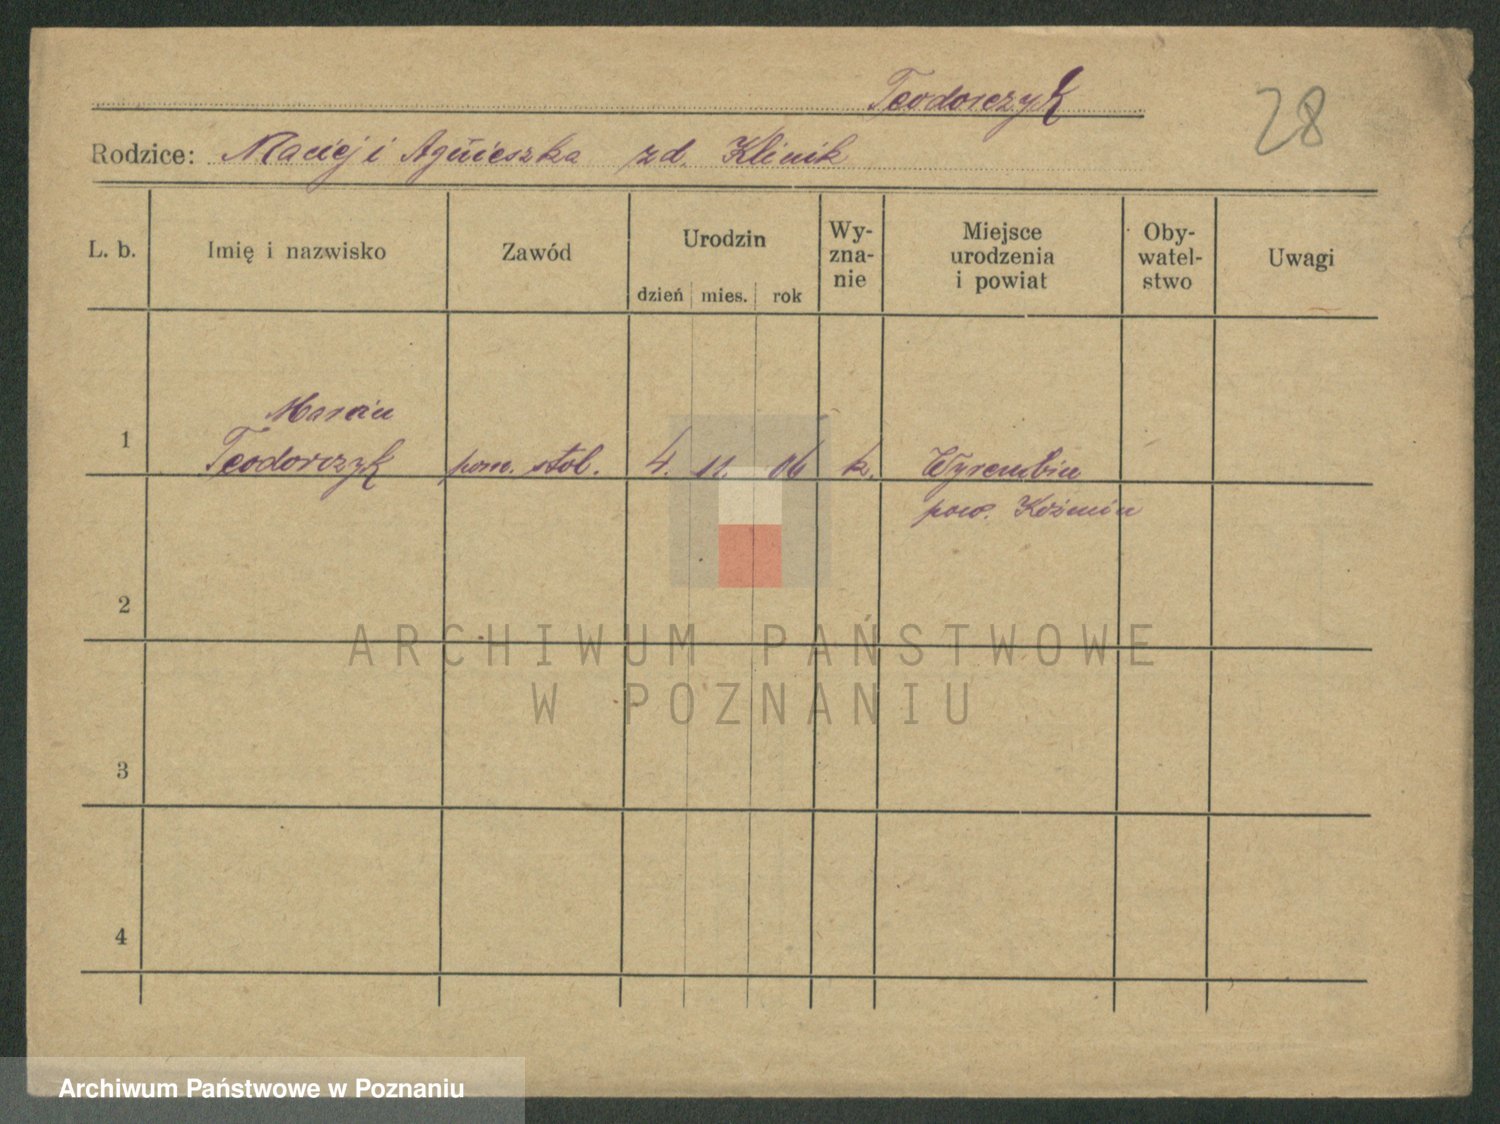 Teodorczyk
28
Rodzice: Maciej i Agnieszka zd. Klinik
L. b. Imię i nazwisko Zawód Urodzin dzień mies. rok Wy-zna-nie Miejsce urodzenia i powiat Oby-watel-stwo Uwagi
Marcin
1 Teodorczyk pom. stol. 4. 11. 06 k. Wyrembin
pow. Koźmin
2
3
4
ARCHIWUM PAŃSTWOWE
W POZNANIU
Archiwum Państwowe w Poznaniu